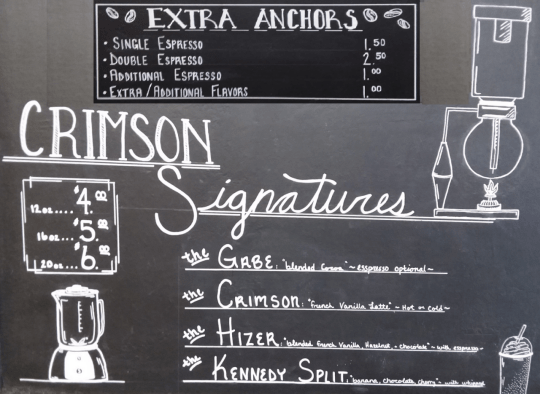 EXTRA ANCHORS
• SINGLE ESPRESSO 1.50
• DOUBLE ESPRESSO 2.50
• ADDITIONAL ESPRESSO 1.00
• EXTRA/ADDITIONAL FLAVORS 1.00
CRIMSON
Signatures
12oz....$4.00
16oz....$5.00
20oz....$6.00
the GABE: "blended Cocoa" ~ espresso optional~
the CRIMSON: "French Vanilla Latte" ~ Hot or cold~
the HIZER: "blended French Vanilla, Hazelnut, + chocolate" ~ with espresso~
the KENNEDY SPLIT: "banana, chocolate, cherry" ~ with whipped